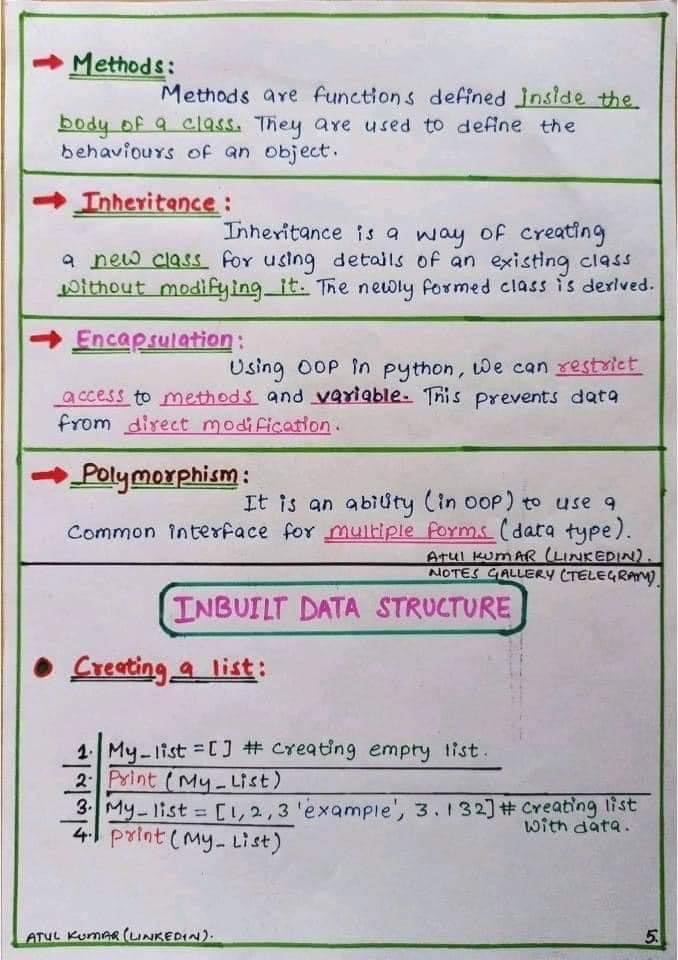 Methods:
Methods are functions defined inside the
body of a class. They are used to define the
behaviours of an object.
Inheritance:
Inheritance is a way of creating
a new class for using details of an existing class
without modifying it. The newly formed class is derived.
Encapsulation:
Using OOP in python, we can restrict
access to methods and variable. This prevents data
from direct modification.
Polymorphism:
It is an ability (in OOP) to use a
Common interface for multiple forms (data type).
ATUL KUMAR (LINKEDIN).
NOTES GALLERY (TELEGRAM)
INBUILT DATA STRUCTURE
Creating a list:
1. My_list = [] # creating empty list.
2. Print (My_List)
3. My_list = [1, 2, 3 'example', 3.132] # Creating list
with data.
4. print (My_List)
ATUL KUMAR (LINKEDIN).
5.